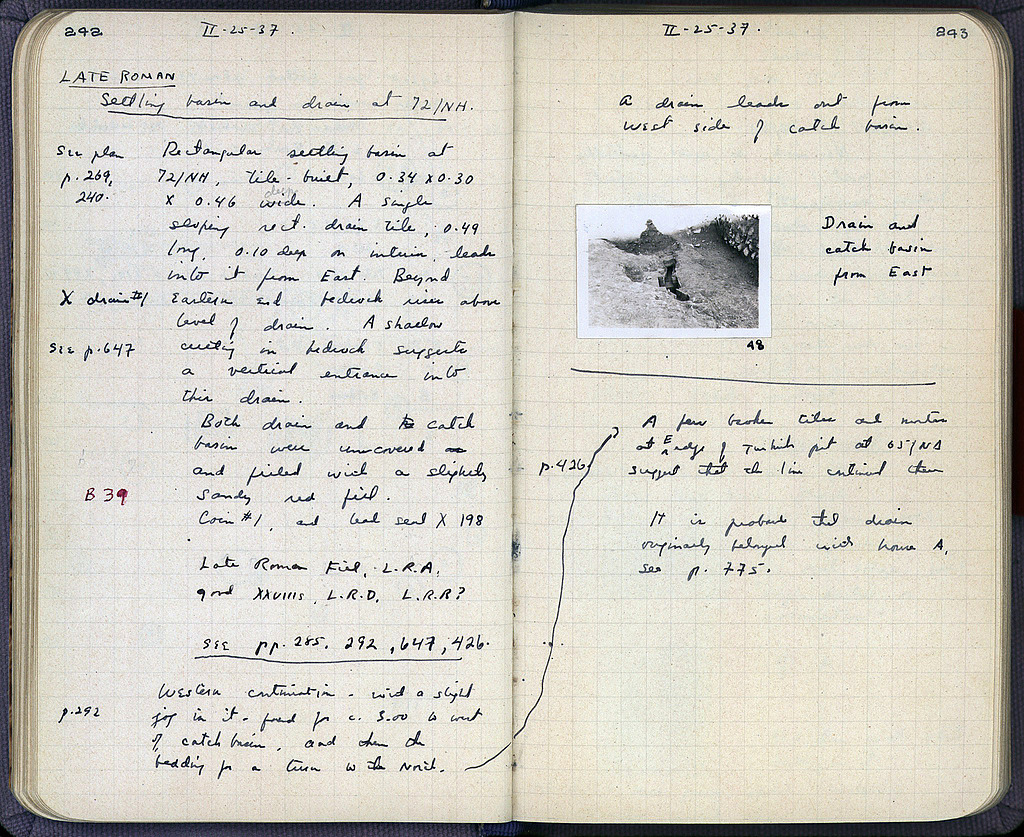 242
II-25-37.
LATE ROMAN
Settling basin and drain at 72/NH.
See plan
p. 269,
240.
Rectangular settling basin at
72/NH, tile-built, 0.34 x 0.30
deep
x 0.46 wide. A single
sloping rect. drain tile, 0.49
long, 0.10 deep on interior, leads
into it from East. Beyond
X drain #1
Eastern end bedrock rises above
level of drain. A shallow
See p. 647
cutting in bedrock suggests
a vertical entrance into
this drain.
Both drain and catch
basin were uncovered
and filled with a slightly
B 39
sandy red fill.
Coin #1, and lead seal X 198
Late Roman Fill, L.R.A,
good XXVIIIs, L.R.D, L.R.B?
See pp. 285, 292, 647, 426.
Western continuation - with a slight
p. 292
jog in it - found for c. 3.00 to west
of catch basin, and then the
bedding for a turn to the North.
II-25-37.
243
A drain leads out from
west side of catch basin.
Drain and
catch basin
from East
48
A few broken tiles and mortar
at E edge of Turkish pit at 65/NA
p. 426
suggest that the line continued there
It is probable that drain
originally belonged with house A,
see p. 775.